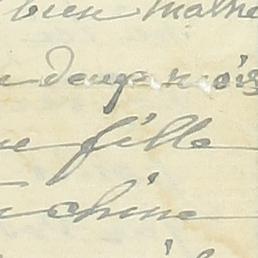 bien malhe
deux mois
fille
chine